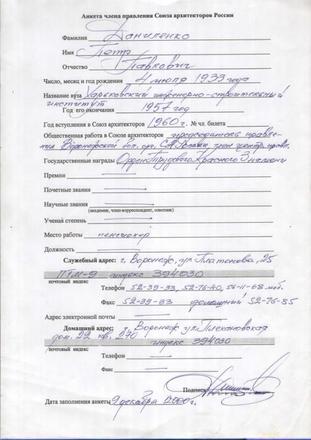 Анкета члена правления Союза архитекторов России
Фамилия Даниленко
Имя Петр
Отчество Павлович
Число, месяц и год рождения 4 июля 1933 года
Название вуза Харьковский инженерно-строительный
институт
Год его окончания 1957 год
Год вступления в Союз архитекторов 1960 г. № чл. билета
Общественная работа в Союза архитекторов председатель
Воронежской САР, член центр.
Государственные награды Орден Трудового Красного Знамени
Премии
Почетные звания
Научные звания
(академик, член-корреспондент, советник)
Ученая степень
Место работы пенсионер
Должность
Служебный адрес: г. Воронеж, ул. Платонова, 25
индекс 394030
почтовый индекс
Телефон 52-39-33, 52-76-40, 56-11-68 моб.
Факс 52-39-33 домашний 52-76-85
Адрес электронной почты
Домашний адрес: г. Воронеж ул. Плехановская
дом. 22 кв. 270 индекс 394030
почтовый индекс
Телефон
Факс
Подпись
Дата заполнения анкеты 9 декабря 2000 г.